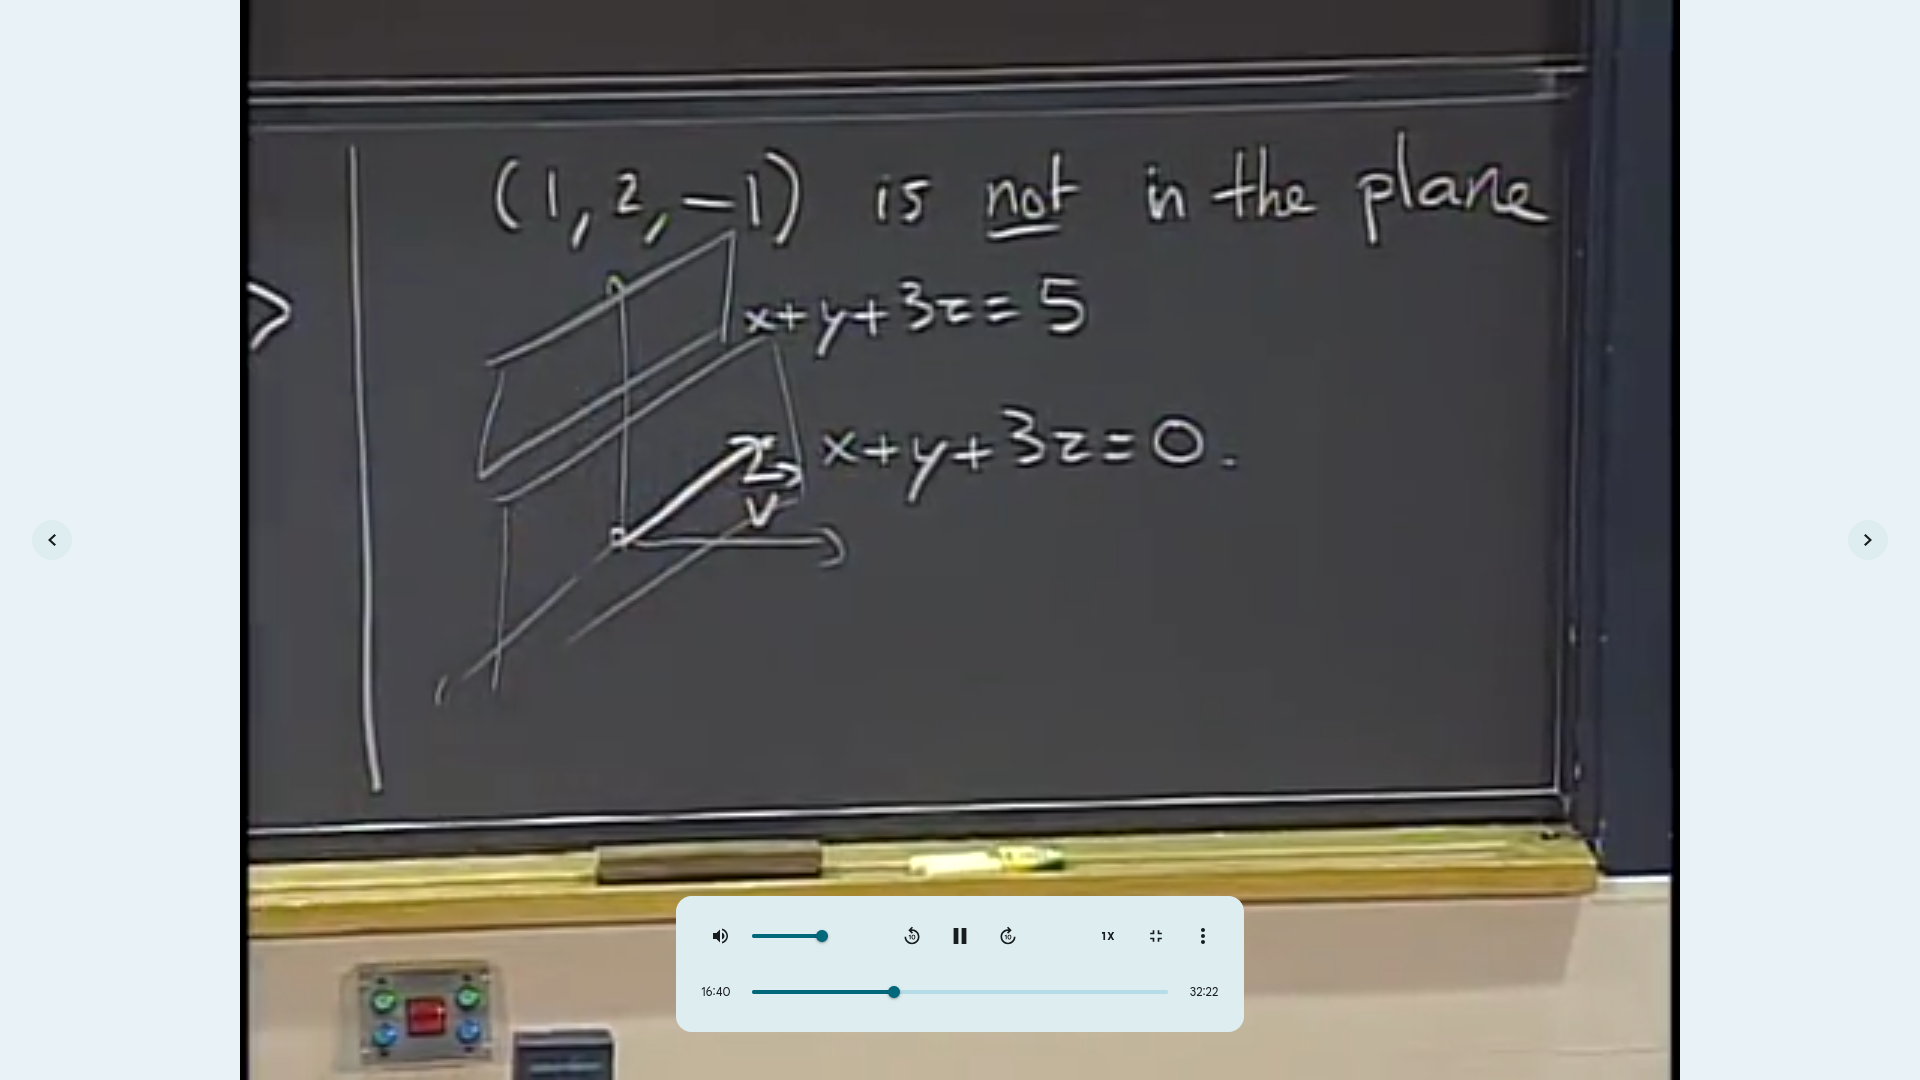 (1, 2, -1) is not in the plane
x+y+3z=5
x+y+3z=0.
v
10
10
1X
16:40
32:22